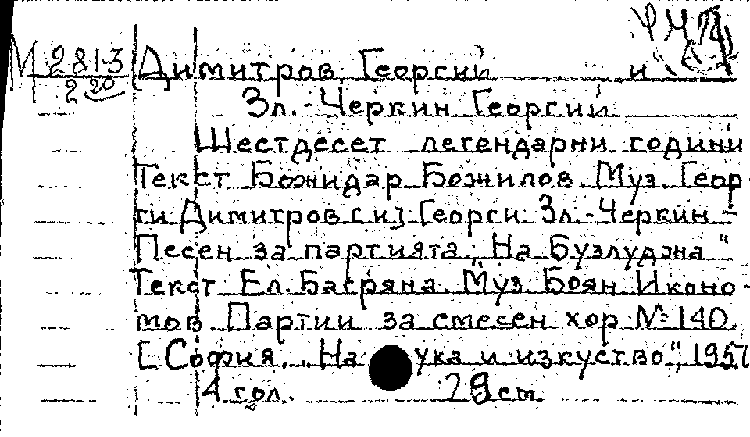 М 2813 Димитров, Георги и
2 20 Зл.-Черкин Георгии
Шестдесет легендарни години
Текст Божидар Божилов. Муз. Геор-
ги Димитров [и] Георги Зл.-Черкин –
Песен за партията. „На Бузлуджа“
Текст Ел. Багряна. Муз. Боян Иконо-
мов. Партии за смесен хор № 140.
[София, „Наука и изкуство“, 1957
4 гол. 28 см